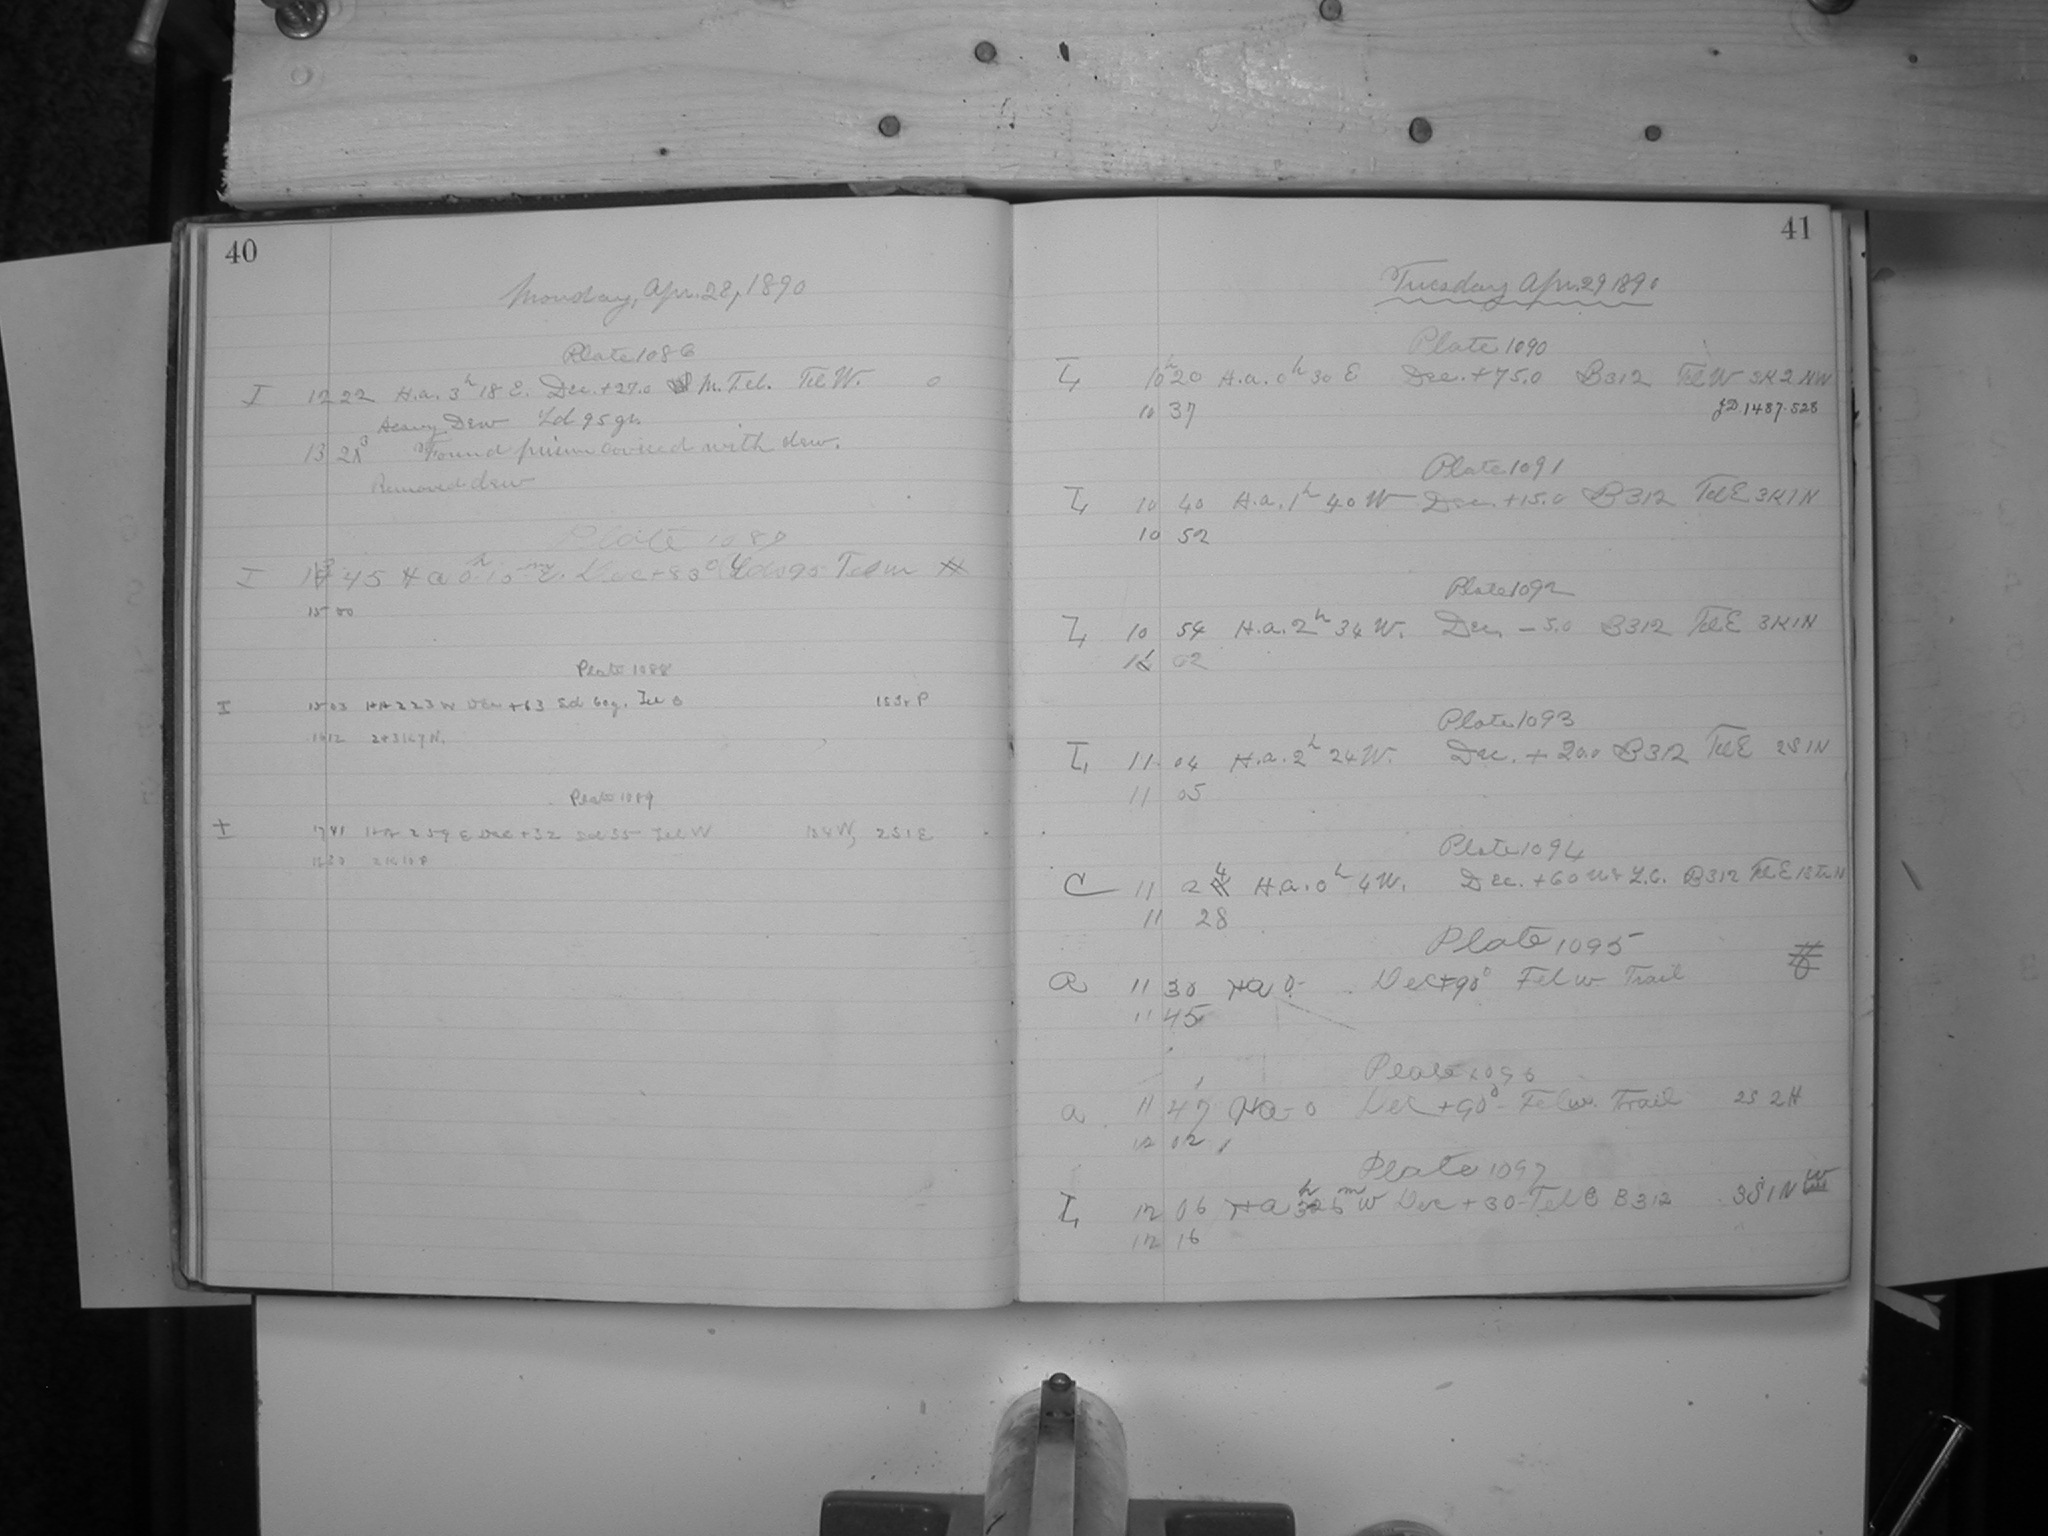 40
Monday, Apr. 28, 1890
Plate 1086
I 12 22 H.a. 3h 18 E. Dec. +27.0 M. Tel. Tel W. 0
Heavy Dew Sd 95 gr.
13 23 Found prism covered with dew.
Removed dew
Plate
I 45 Ha 0h 15m E. Dec +83° Sds 95 Tel m
15 00
Plate 1088
I 15 03 HA 2 23 W Dec +63 Sd 60g. Tel E
1612
Plate 1089
I 17 41 HA 2 59 E Dec +32 Sd 35 Tel W 2S1E
18 30
41
Tuesday Apr. 29 1890
Plate 1090
I, 10h 20 H.a. 0h 30 E Dec. +75.0 B312 Tel W 3K2NW
10 37 JD 1487.528
Plate 1091
I, 10 40 H.a. 1h 40 W Dec. +15.0 B312 Tel E 3K1N
10 52
Plate 1092
I, 10 54 H.a. 2h 34 W. Dec. -5.0 B312 Tel E 3K1N
11 02
Plate 1093
I, 11 04 H.a. 2h 24 W. Dec. +20.0 B312 Tel E 2S1N
11 05
Plate 1094
C 11 24 H.a. 0h 4 W. Dec. +60 B312 Tel E
11 28
Plate 1095
a 11 30 Ha 0- Dec +90° Tel w Trail
11 45
Plate 1096
a 11 47 Ha-0 Dec +90°- Tel w. Trail 2S 2H
12 02
Plate 1097
I, 12 06 Ha W Dec +30- Tel E B312 3S1N W
12 16